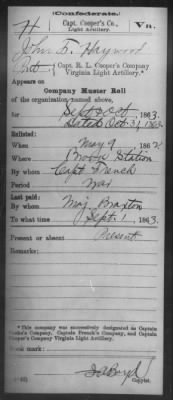 (Confederate.)
H Capt. Cooper's Co., Light Artillery. Va.
John S. Haywood
Pvt., Capt. R. L. Cooper's Company Virginia Light Artillery.*
Appears on
Company Muster Roll
of the organization named above,
for Sept & Oct, 1863.
dated Oct. 31, 1863
Enlisted:
When May 9, 1862
Where Brooke Station
By whom Capt French
Period War
Last paid:
By whom Maj. Braxton
To what time Sept. 1, 1863.
Present or absent Present
Remarks:
*This company was successively designated as Captain
Cooke's Company, Captain French's Company, and Captain
Cooper's Company Virginia Light Artillery.
Book mark:
Boyd
Copyist.